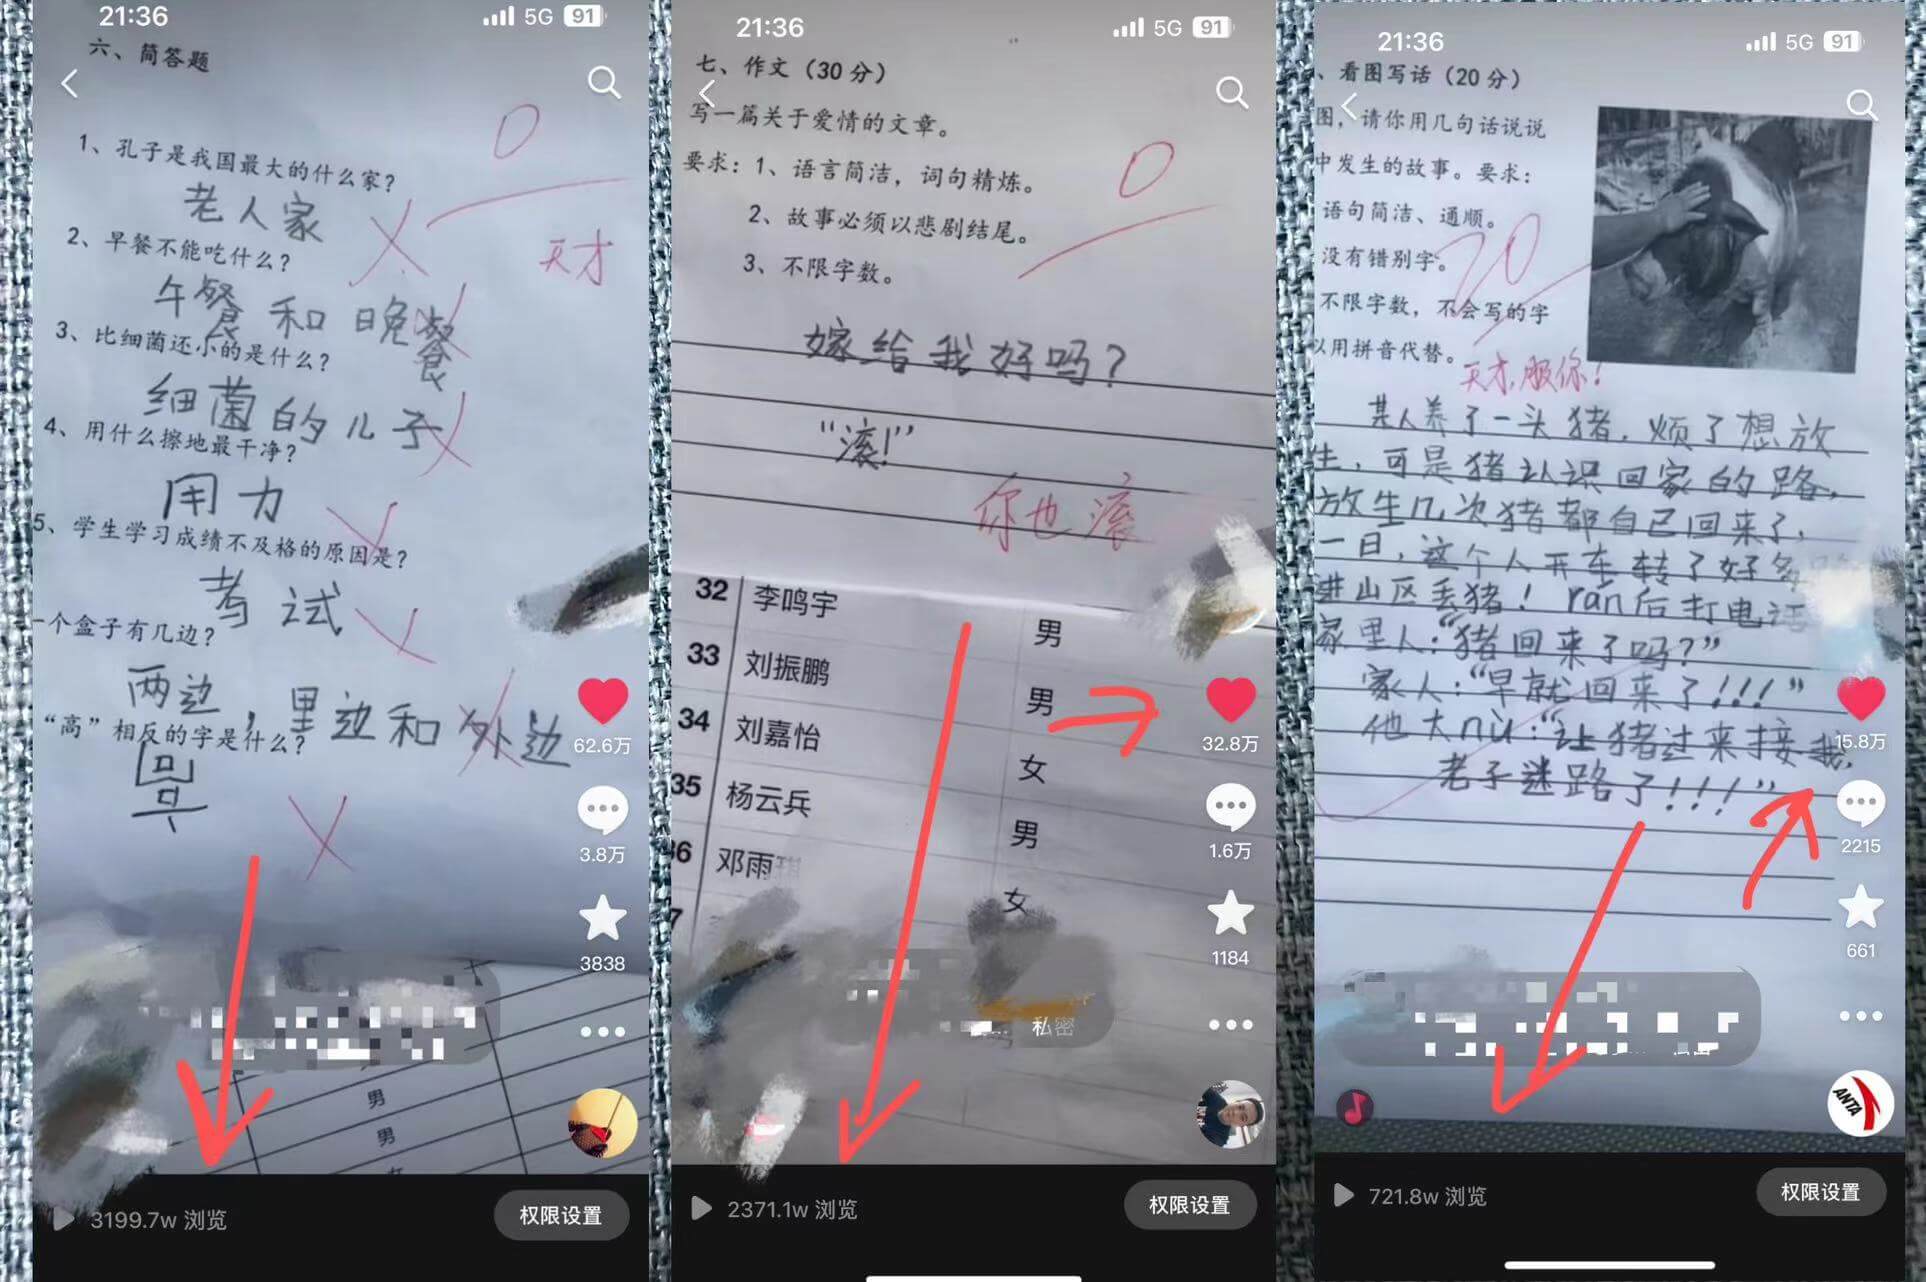 21:36
5G 91
六、简答题
0
1、孔子是我国最大的什么家?
老人家
天才
2、早餐不能吃什么?
午餐和晚餐
3、比细菌还小的是什么?
细菌的儿子
4、用什么擦地最干净?
用力
5、学生学习成绩不及格的原因是?
考试
一个盒子有几边?
两边,里边和外边
“高”相反的字是什么?
62.6万
3.8万
3838
男
男
女
3199.7w 浏览
权限设置
21:36
5G 91
七、作文(30分)
写一篇关于爱情的文章。
0
要求:1、语言简洁,词句精炼。
2、故事必须以悲剧结尾。
3、不限字数。
嫁给我好吗?
“滚!”
你也滚
32 李鸣宇 男
33 刘振鹏 男
34 刘嘉怡 女
35 杨云兵 男
36 邓雨琪 女
32.8万
1.6万
1184
私密
2371.1w 浏览
权限设置
21:36
5G 91
、看图写话(20分)
图,请你用几句话说说
中发生的故事。要求:
语句简洁、通顺。
没有错别字。
20
不限字数,不会写的字
以用拼音代替。
天才,服你!
某人养了一头猪,烦了想放
生,可是猪认识回家的路,
放生几次猪都自己回来了,
一日,这个人开车转了好多
进山区丢猪!rán后打电话
家里人:“猪回来了吗?”
家人:“早就回来了!!!”
他大nù:“让猪过来接我,
老子迷路了!!!”
15.8万
2215
661
ANTA
721.8w 浏览
权限设置